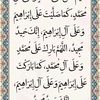 مُحَمَّدٍ، كَمَا صَلَّيْتَ عَلَى إِبْرَاهِيمَ
وَعَلَى آلِ إِبْرَاهِيمَ، إِنَّكَ حَمِيدٌ
مَجِيدٌ، اللَّهُمَّ بَارِكْ عَلَى مُحَمَّدٍ
وَعَلَى آلِ مُحَمَّدٍ، كَمَا بَارَكْتَ
عَلَى إِبْرَاهِيمَ وَعَلَى آلِ إِبْرَاهِيمَ